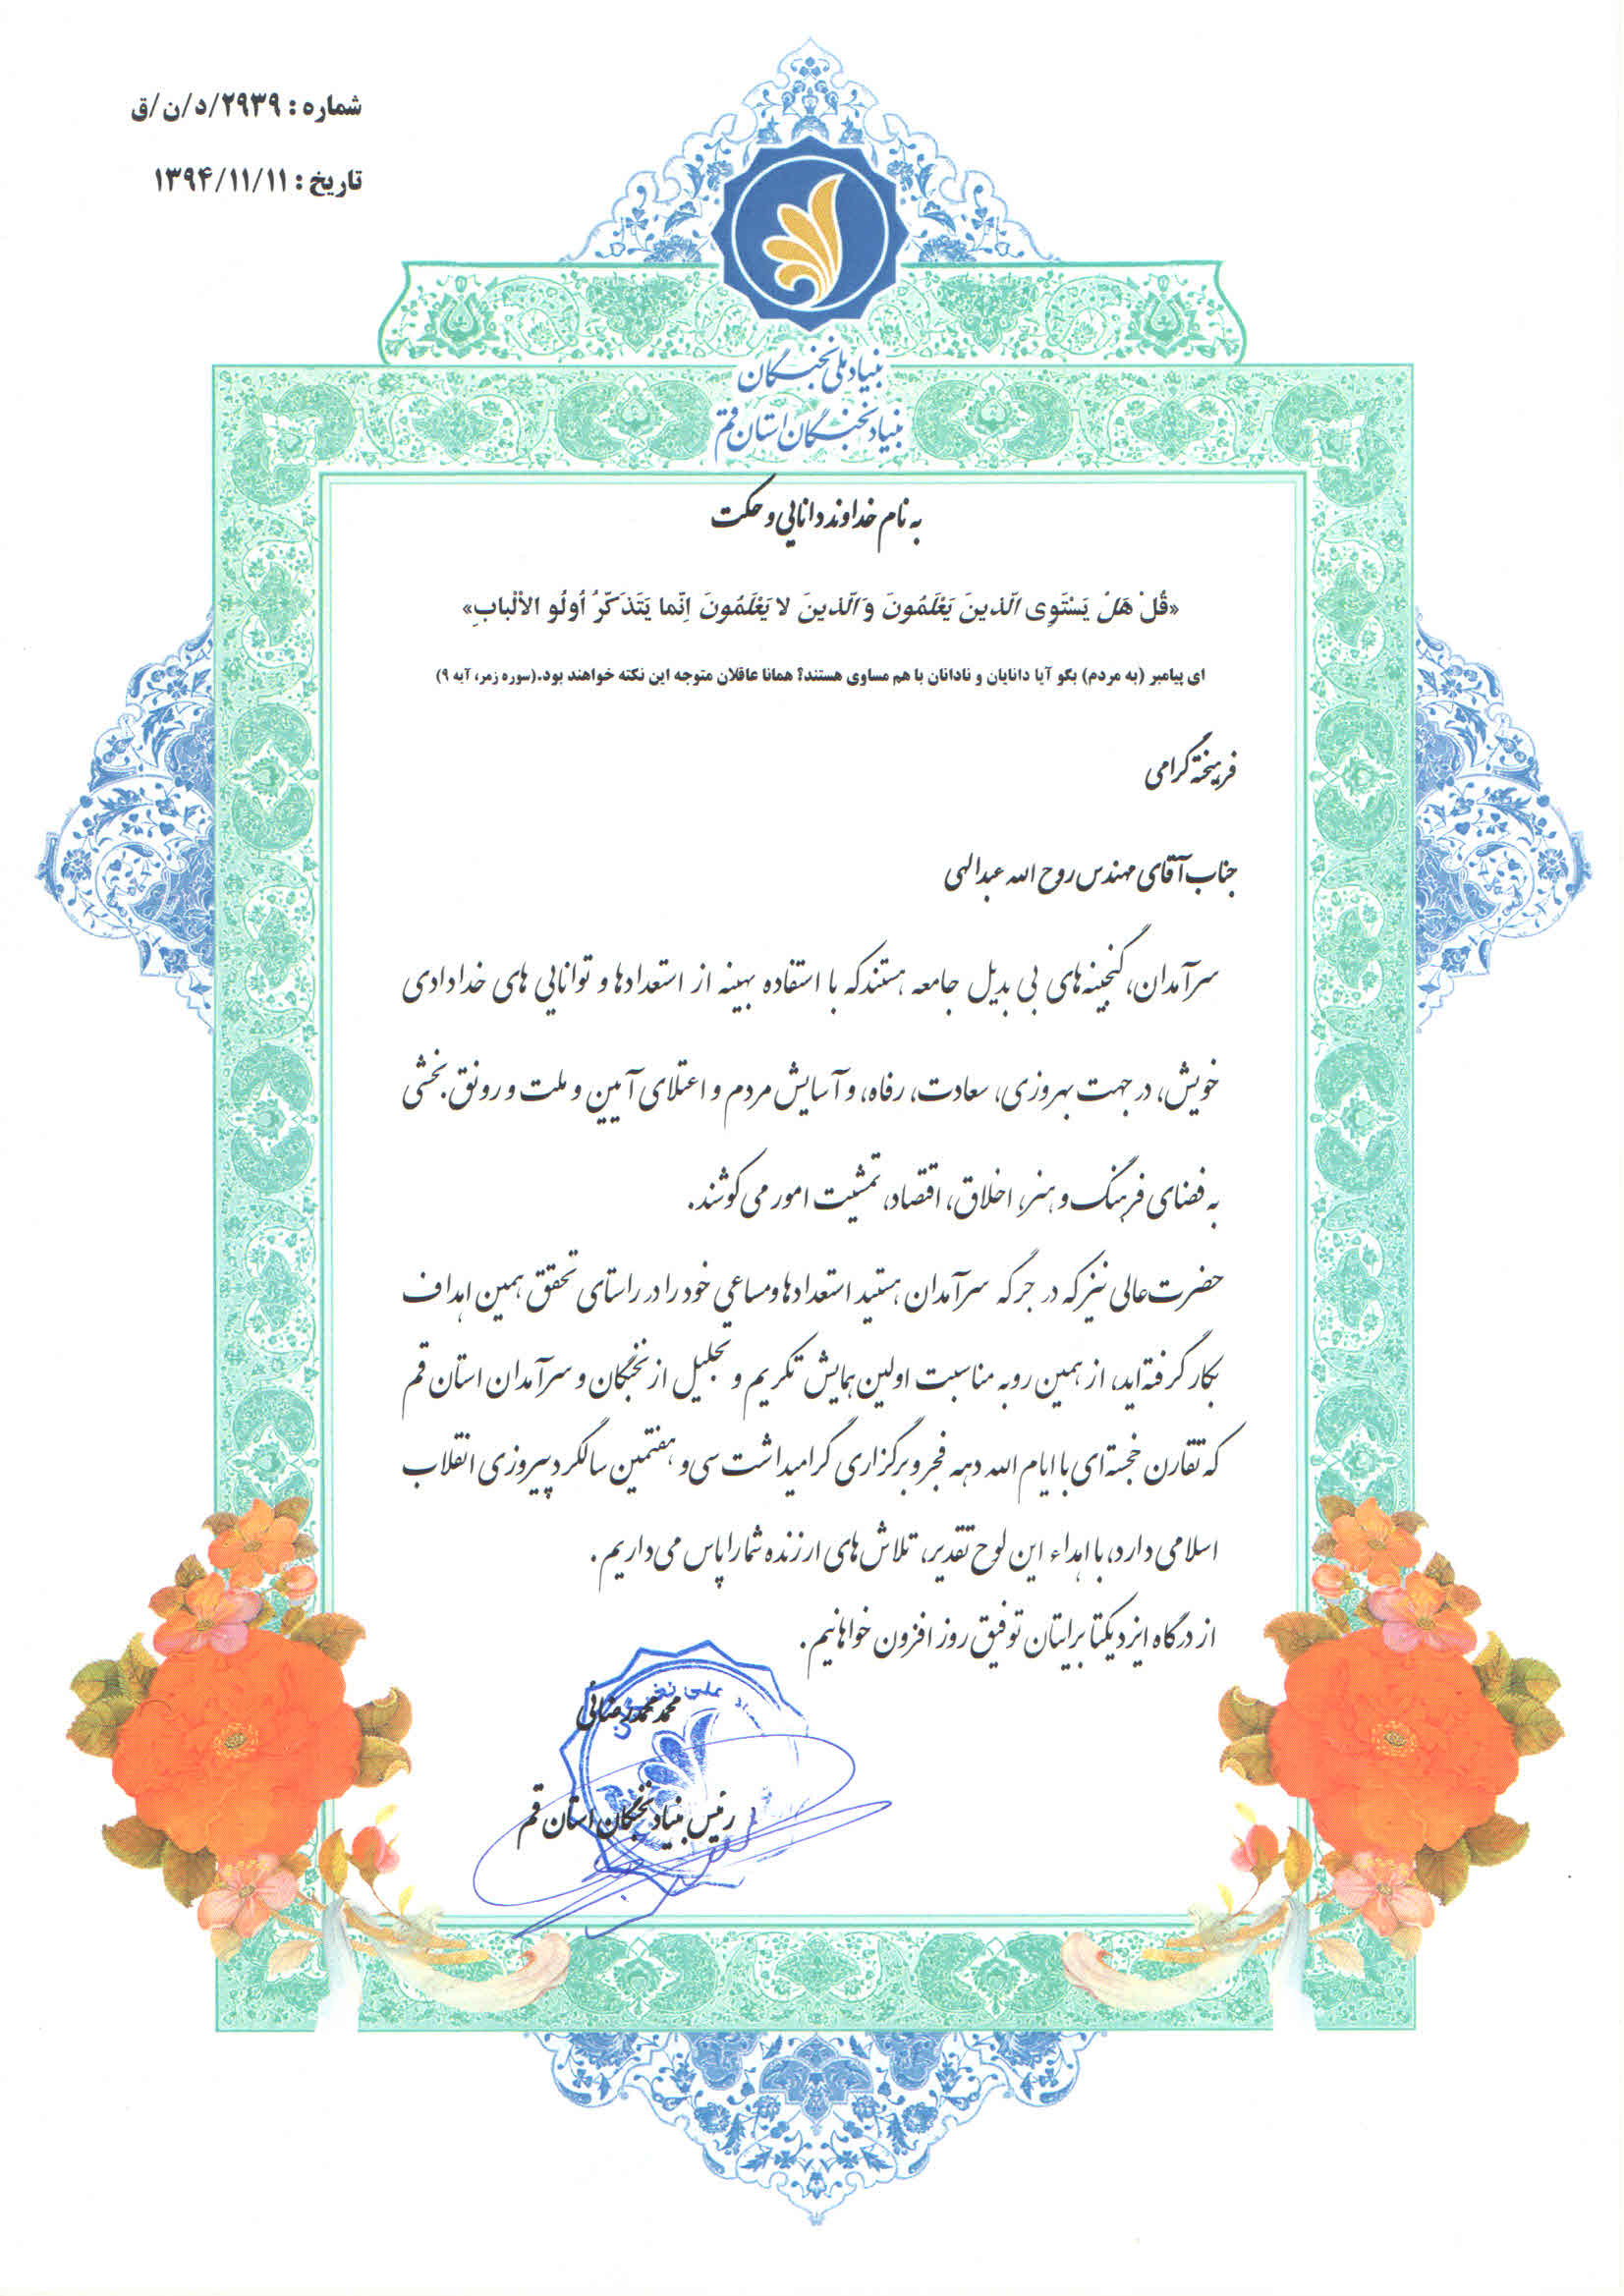 شماره : ۲۹۳۹/د/ن/ق
تاریخ : ۱۳۹۴/۱۱/۱۱
بنیاد ملی نخبگان
بنیاد نخبگان استان قم
به نام خداوند دانایی و حکمت
«قُلْ هَلْ يَسْتَوِى الَّذينَ يَعْلَمُونَ وَالَّذينَ لا يَعْلَمُونَ اِنَّما يَتَذَكَّرُ اُولُو الاَلْبابِ»
ای پیامبر (به مردم) بگو آیا دانایان و نادانان با هم مساوی هستند؟ همانا عاقلان متوجه این نکته خواهند بود.(سوره زمر، آیه ۹)
فرهیخته گرامی
جناب آقای مهندس روح الله عبدالهی
سرآمدان، گنجینه های بی بدیل جامعه هستند که با استفاده بهینه از استعدادها و توانایی های خدادادی
خویش، در جهت بهروزی، سعادت، رفاه، و آسایش مردم و اعتلای آیین و ملت و رونق بخشی
به فضای فرهنگ و هنر، اخلاق، اقتصاد، تمشیت امور می کوشند.
حضرت عالی نیز که در جرگه سرآمدان هستید استعدادها و مساعی خود را در راستای تحقق همین اهداف
بکار گرفته اید، از همین رو به مناسبت اولین همایش تکریم و تجلیل از نخبگان و سرآمدان استان قم
که تقارن خجسته ای با ایام الله دهه فجر و برگزاری گرامیداشت سی و هفتمین سالگرد پیروزی انقلاب
اسلامی دارد، با اهداء این لوح تقدیر، تلاش های ارزنده شما را پاس می داریم.
از درگاه ایزد یکتا برایتان توفیق روز افزون خواهانیم.
محمد محمدرضائی
رئیس بنیاد نخبگان استان قم